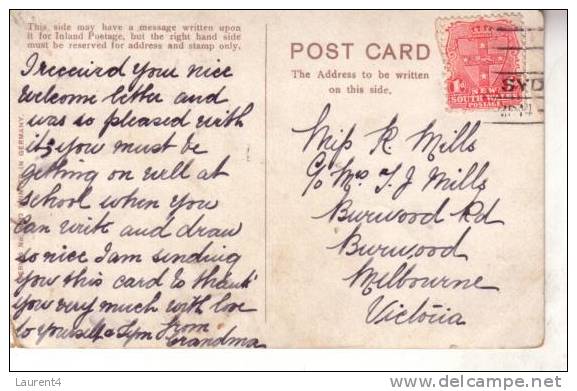 This side may have a message written upon
it for Inland Postage, but the right hand side
must be reserved for address and stamp only.
I received your nice
welcome letter and
was so pleased with
it, you must be
getting on well at
school when you
can write and draw
so nice I am sending
you this card to thank
you very much with love
to yourself & from
Grandma
IN GERMANY
POST CARD
The Address to be written
on this side.
1D
NEW
SOUTH WALES
POSTAGE
SYD
Miss R Mills
C/o Mrs T. J Mills
Burwood Rd
Burwood
Melbourne
Victoria
Laurent4
delcampe.net